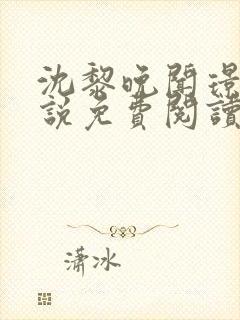 沈黎晚聞璟
說免費閱讀
瀟冰